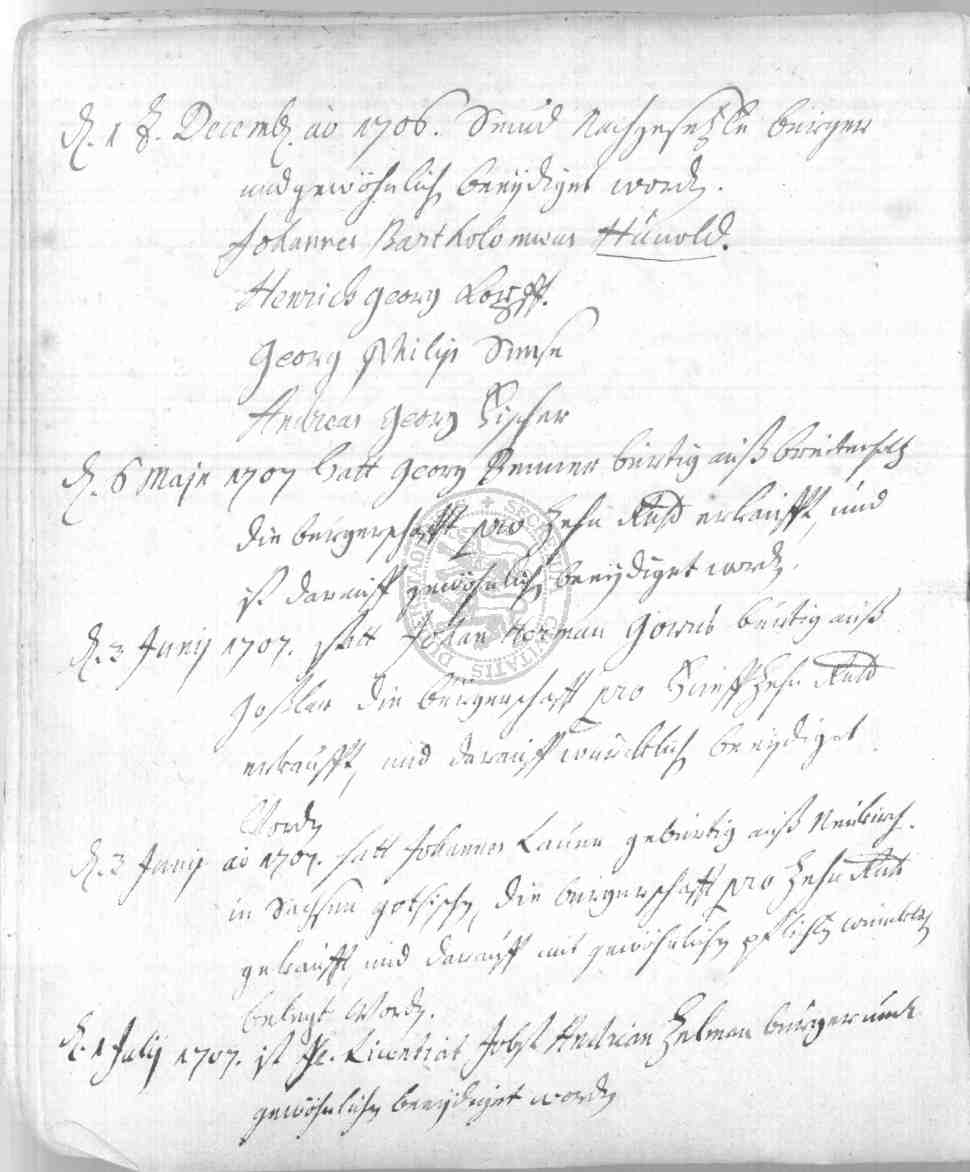 d. 1 t. Decemb. ao 1706. Seind Nachgesetzte bürger
und gewöhnlich beeydiget word.
Johannes Bartholomeus Hünold.
Henrich Georg
Georg Philip
Andreas Georg Fischer
d. 6 Maje 1707 hatt Georg Renner bürtig auß
die bürgerschafft pro Zehn Rthlr erkaufft, und
ist darauff gewöhnlich beeydiget word.
d. 3 Junij 1707. hatt Johan Herman bürtig auß
Goßlar die bürgerschafft pro Funffzehn Rthlr
erkaufft, und darauff würcklich beeydiget
Word
d. 3 Junij ao 1707. hatt Johannes Lauen gebürtig auß Neukirch.
in Sachsen gothisch, die bürgerschafft pro Zehn Rthlr
gekaufft, und darauff mit gewöhnlichen pflichten
belegt Word.
d. 1 Julij 1707. ist Hr. Licentiat Jobst Andrian Zelman bürger undt
gewöhnlich beeydiget word
SECRETUM CIVITATIS DUDERSTADT